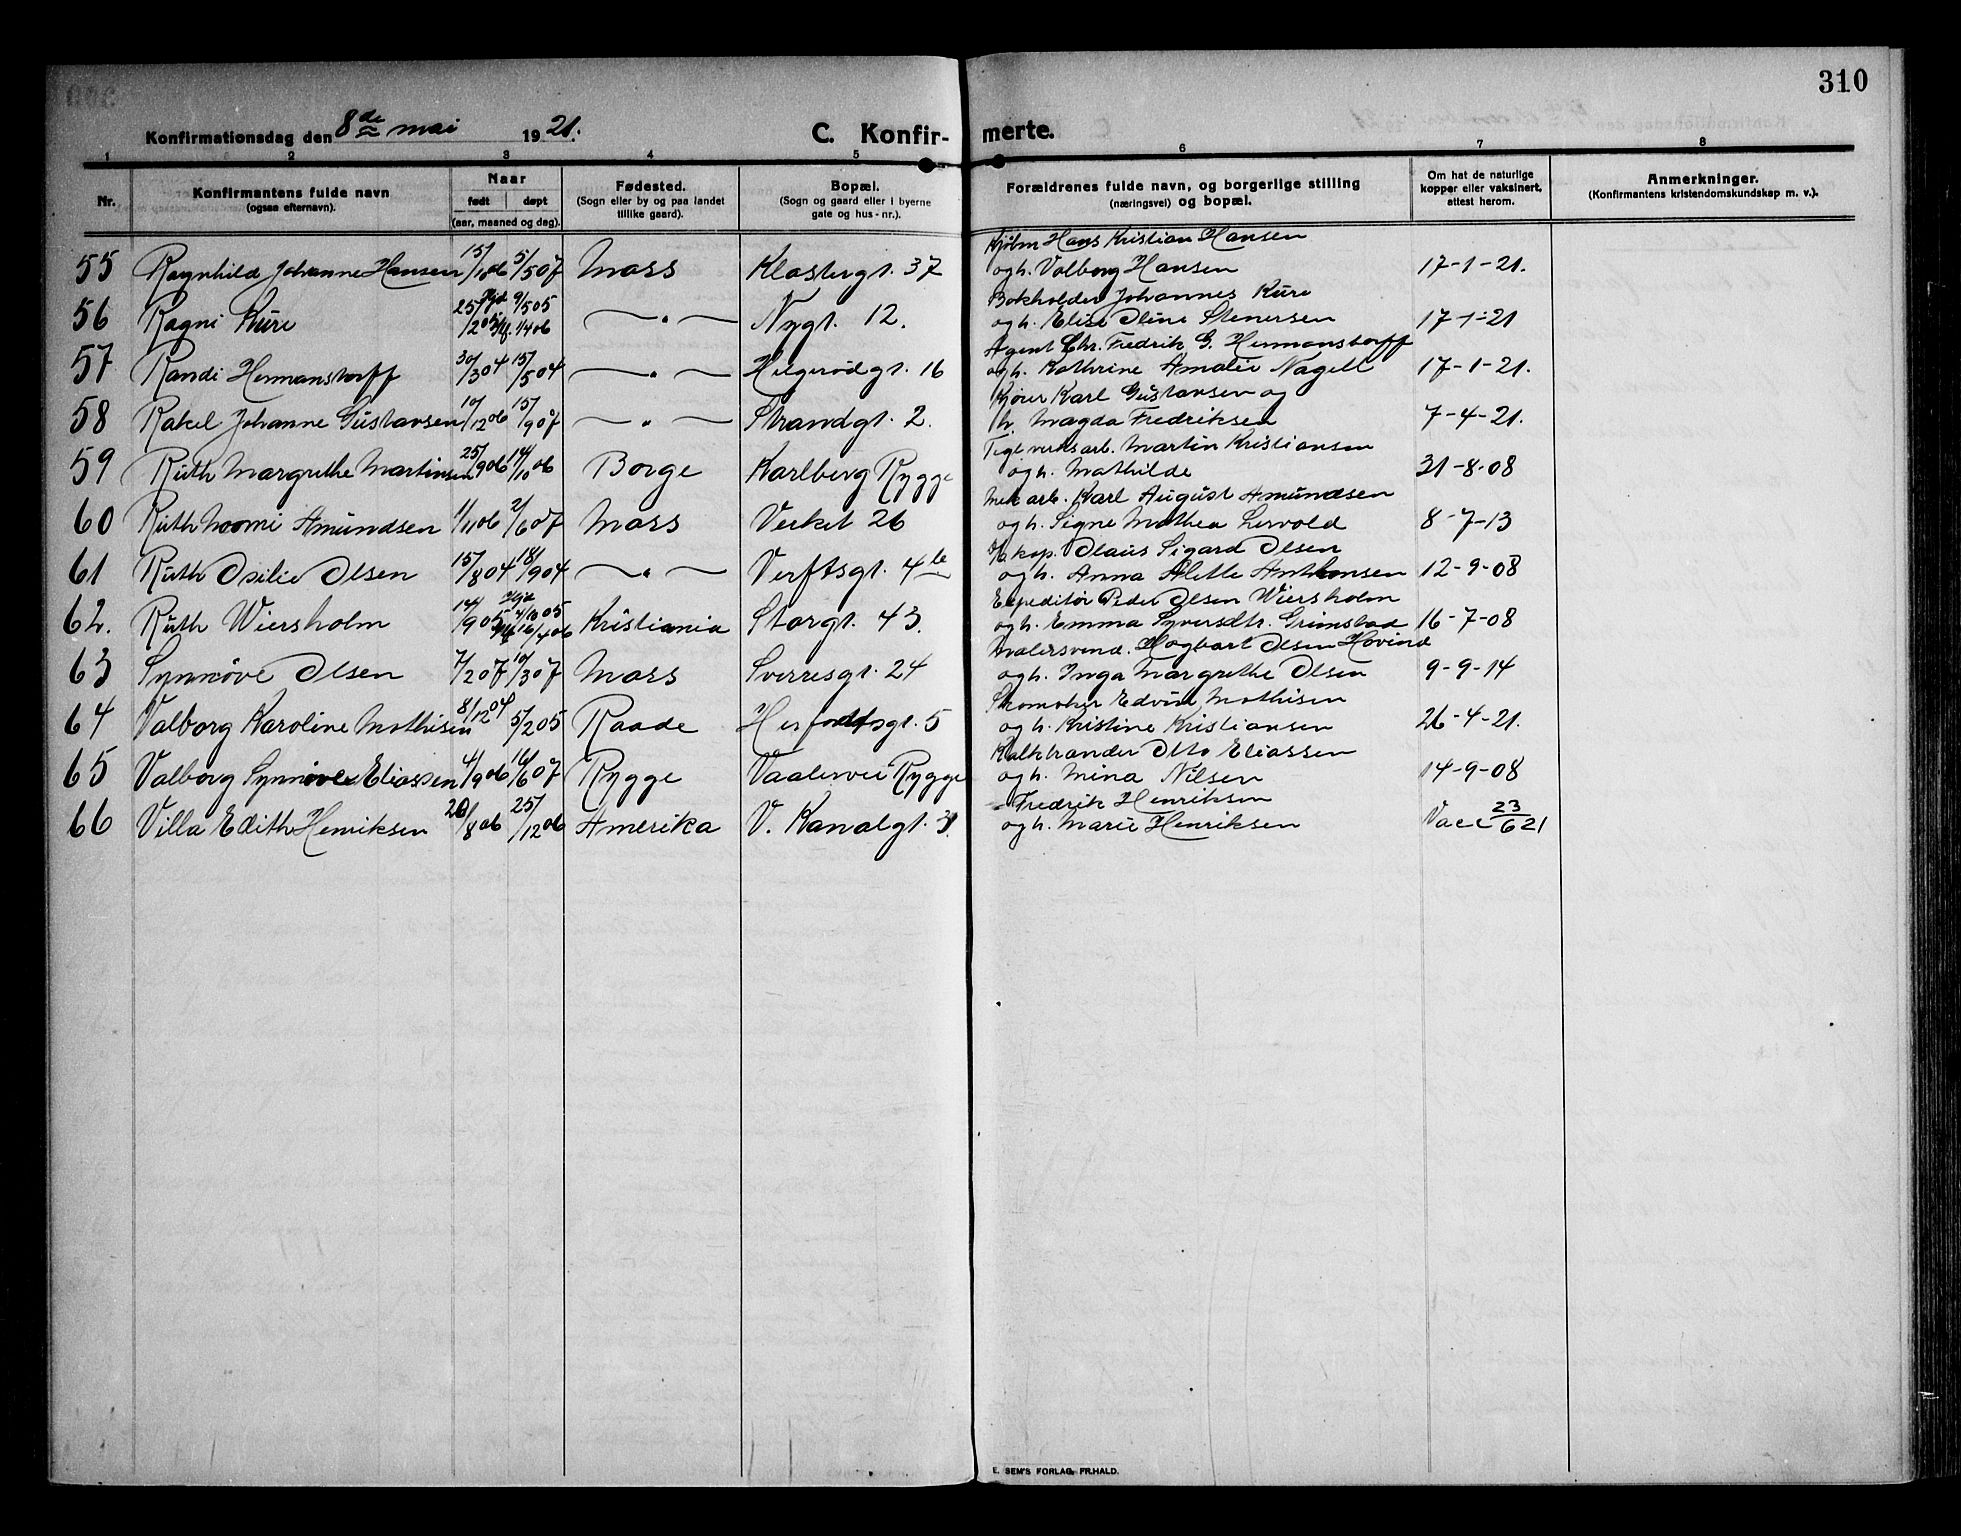 310
Konfirmationsdag den 8de mai 1921.
C. Konfirmerte.
1 2 3 4 5 6 7 8
Nr. Konfirmantens fulde navn (ogsaa efternavn). Naar født døpt (aar, maaned og dag). Fødested. (Sogn eller by og paa landet tillike gaard). Bopæl. (Sogn og gaard eller i byerne gate og hus-nr.). Forældrenes fulde navn, og borgerlige stilling (næringsvei) og bopæl. Om hat de naturlige kopper eller vaksinert, attest herom. Anmerkninger. (Konfirmantens kristendomskundskap m. v.).
Kjølm Hans Kristian Hansen
55 Ragnhild Johanne Hansen 15/10 06 5/5 07 Moss Klostergt. 37 og h. Valborg Hansen 17-1-21.
Bokholder Johannes Kure
56 Ragni Kure 25/2 05 9/5 05 1/4 06 —〃— Nygt. 12. og h. Elise Oline Stenersen 17-1-21
Agent Chr. Fredrik G. Hermanstorff
57 Randi Hermanstorff 30/3 04 15/5 04 —〃— Helgerødgt. 16 og h. Kathrine Amalie Nagell 17-1-21.
Kjører Karl Gustavsen og
58 Rakel Johanne Gustavsen 10/12 06 15/9 07 —〃— Strandgt. 2. h. Magda Fredriksen 7-4-21.
Teglverksarb. Martin Kristiansen
59 Ruth Margrethe Martinsen 25/9 06 14/10 06 Borge Karlberg Rygge og h. Mathilde 31-8-08
Mek arb. Karl August Amundsen
60 Ruth Noomi Amundsen 1/11 06 2/6 07 Moss Verket 26 og h. Signe Mathea Lervold 8-7-13
Olaus Sigard Olsen
61 Ruth Osilie Olsen 15/8 04 18/9 04 —〃— Verftsgt. 4 og h. Anna Alette Anthonsen 12-9-08
Expeditør Peder Olsen Wiersholm
62. Ruth Wiersholm 14/9 05 4/10 05 16/4 06 Kristiania Storgt. 43. og h. Emma Syversdtr. Grimstad 16-7-08
Malersvend. Hagbart Olsen Hovind
63 Synnøve Olsen 7/2 07 10/3 07 Moss Sverresgt. 24 og h. Inga Margrethe Olsen 9-9-14
Skomaker Edvin Mathisen
64 Valborg Karoline Mathisen 8/12 04 5/2 05 Raade Herfodtsgt. 5 og h. Kristine Kristiansen 26-4-21.
Kalkbrander Otto Eliassen
65 Valborg Synnøve Eliassen 4/9 06 16/6 07 Rygge Vaalervei Rygge og h. Mina Nilsen 14-9-08
Fredrik Henriksen
66 Villa Edith Henriksen 20/8 06 25/12 06 Amerika V. Kanalgt. 3. og h. Marie Henriksen Vacc 23/6 21
E. SEM'S FORLAG, FR.HALD.